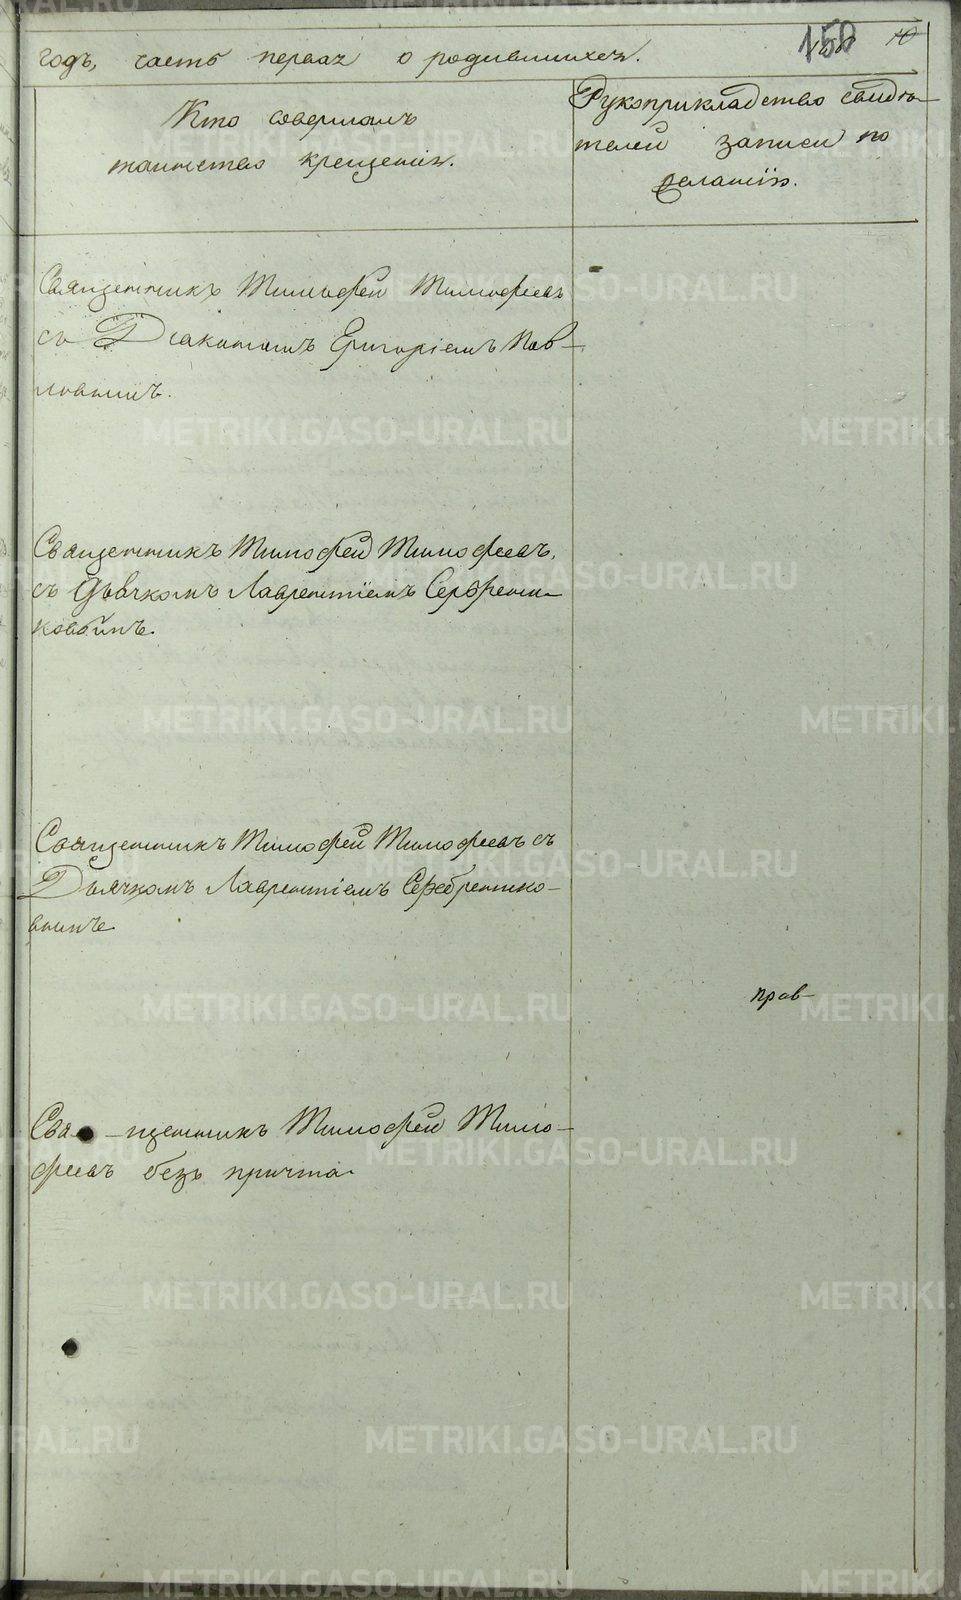 годъ, часть первая о родившихся.
158 10
Кто совершалъ
таинство крещенія.
Рукоприкладство свидѣ-
телей записи по
желанію.
Священникъ Тимофей Тимофеевъ
съ Діакономъ Григоріемъ Пав-
ловымъ.
Священникъ Тимофей Тимофеевъ,
съ Дьячкомъ Лаврентіемъ Серебрени-
ковымъ.
Священникъ Тимофей Тимофеевъ съ
Дьячкомъ Лаврентіемъ Серебренико-
вымъ
прав-
Свя-щенникъ Тимофей Тимо-
феевъ безъ причта
METRIKI.GASO-URAL.RU